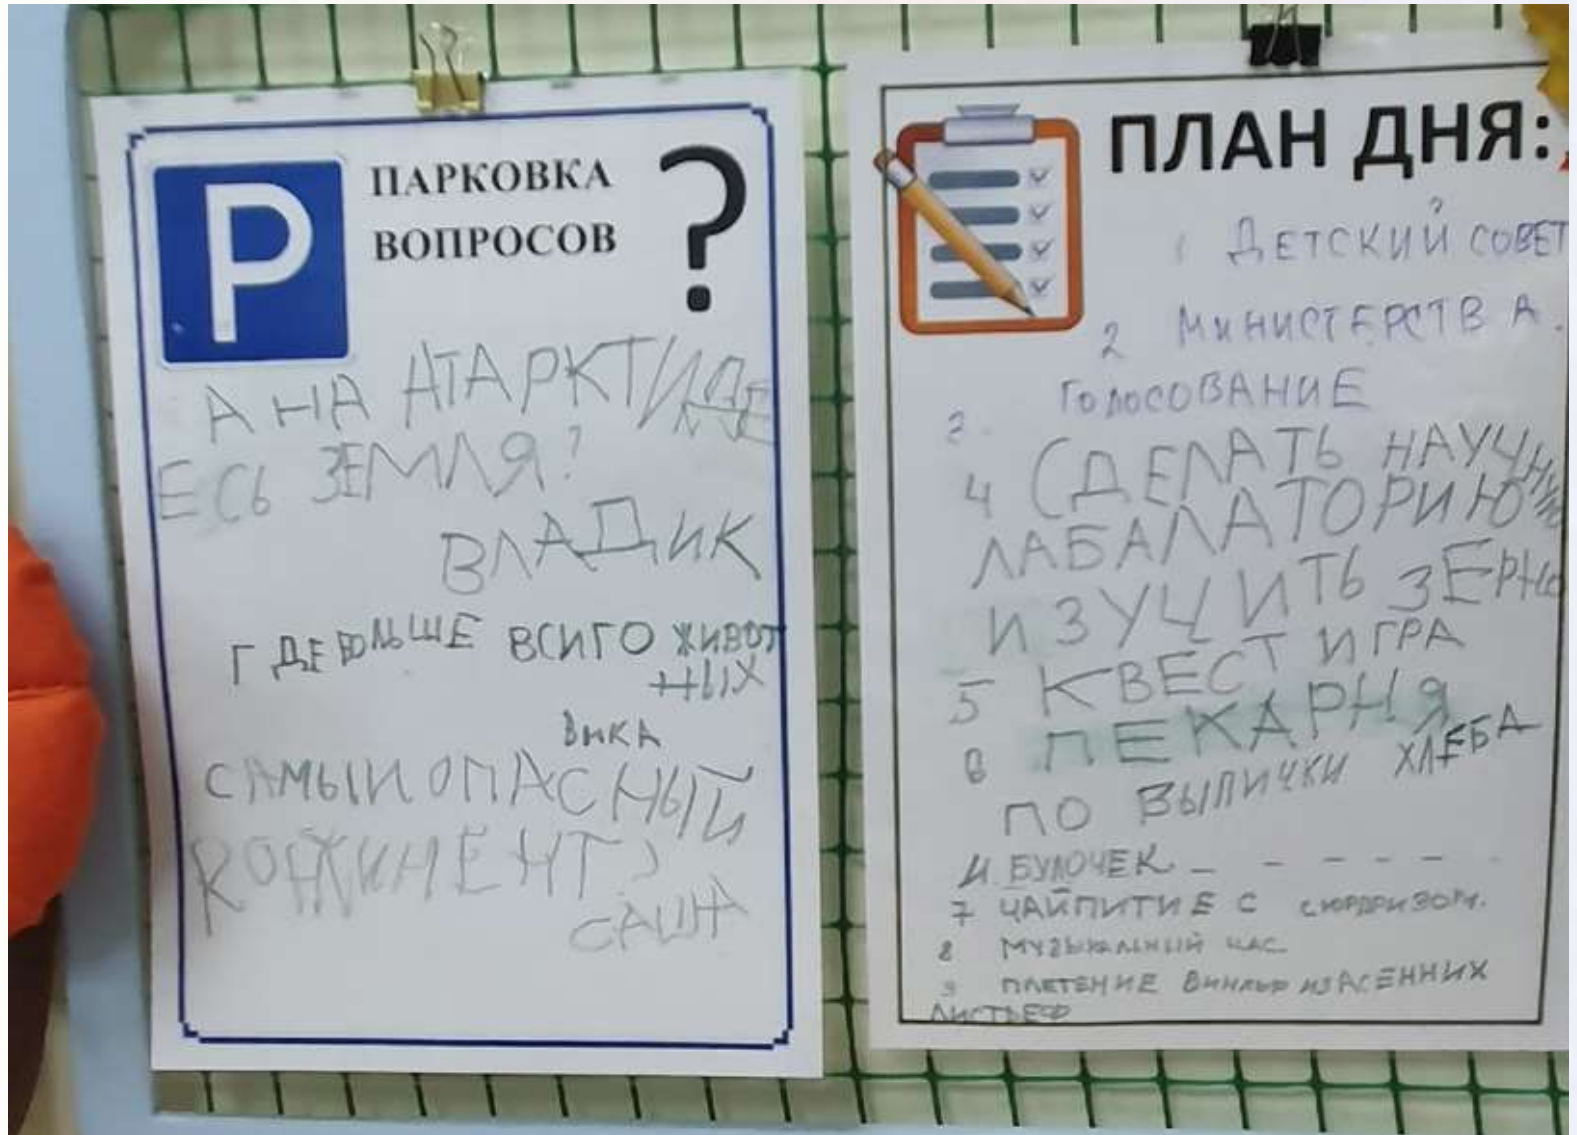 P
ПАРКОВКА
ВОПРОСОВ
?
А НА АТАРКТИДЕ
ЕСЬ ЗЕМЛЯ?
ВЛАДИК
ГДЕ БОЛЬШЕ ВСИГО ЖИВОТ
НЫХ
ВИКА
САМЫИ ОПАСНЫЙ
КОНТИНЕНТ?
САША
ПЛАН ДНЯ:
1 ДЕТСКИЙ СОВЕТ
2 МИНИСТЕРСТВА.
3. ГОЛОСОВАНИЕ
4 СДЕЛАТЬ
ЛАБАЛАТОРИЮ
ИЗУЧИТЬ ЗЕРНО
5 КВЕСТ ИГРА
6 ПЕКАРНЯ
ПО ВЫПИЧКИ ХЛЕБА
И БУЛОЧЕК _ _ _ _ _ _
7 ЧАЙПИТИЕ С СЮРПРИЗОМ.
8 МУЗЫКАЛЬНЫЙ ЧАС
9 ПЛЕТЕНИЕ ИЗ АСЕННИХ
ЛИСТЬЕФ